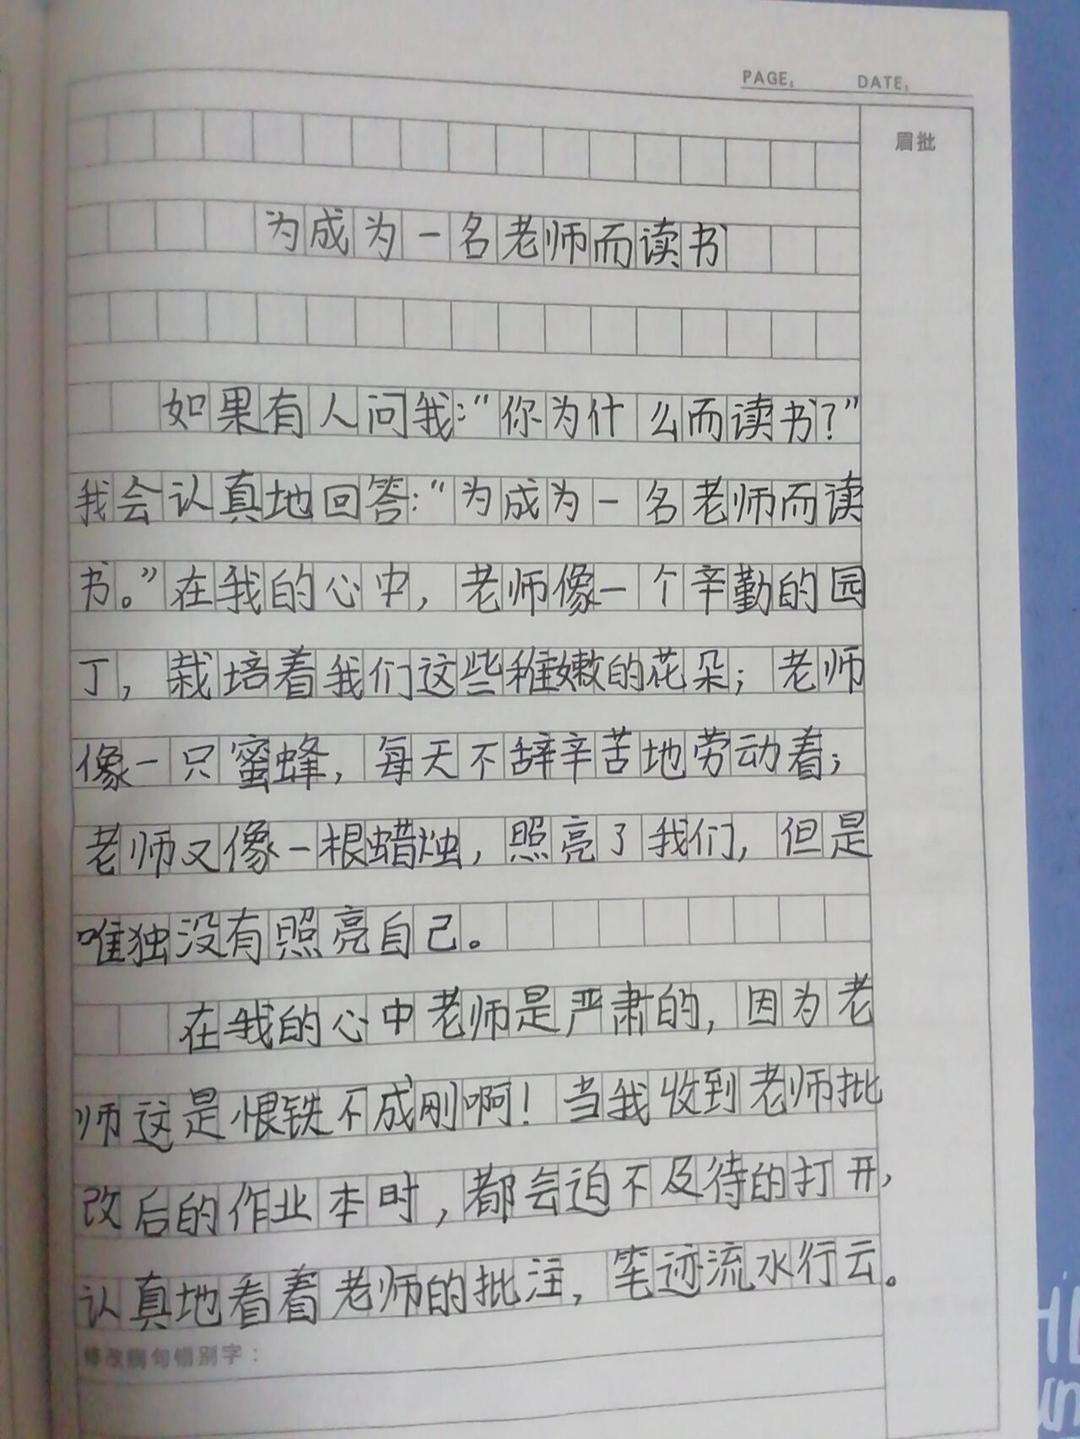 PAGE: DATE:
眉批
为成为一名老师而读书
如果有人问我:“你为什么而读书?”
我会认真地回答:“为成为一名老师而读
书。”在我的心中,老师像一个辛勤的园
丁,栽培着我们这些稚嫩的花朵;老师
像一只蜜蜂,每天不辞辛苦地劳动着;
老师又像一根蜡烛,照亮了我们,但是
唯独没有照亮自己。
在我的心中老师是严肃的,因为老
师这是恨铁不成刚啊!当我收到老师批
改后的作业本时,都会迫不及待的打开,
认真地看着老师的批注,笔迹流水行云。
修改病句错别字: